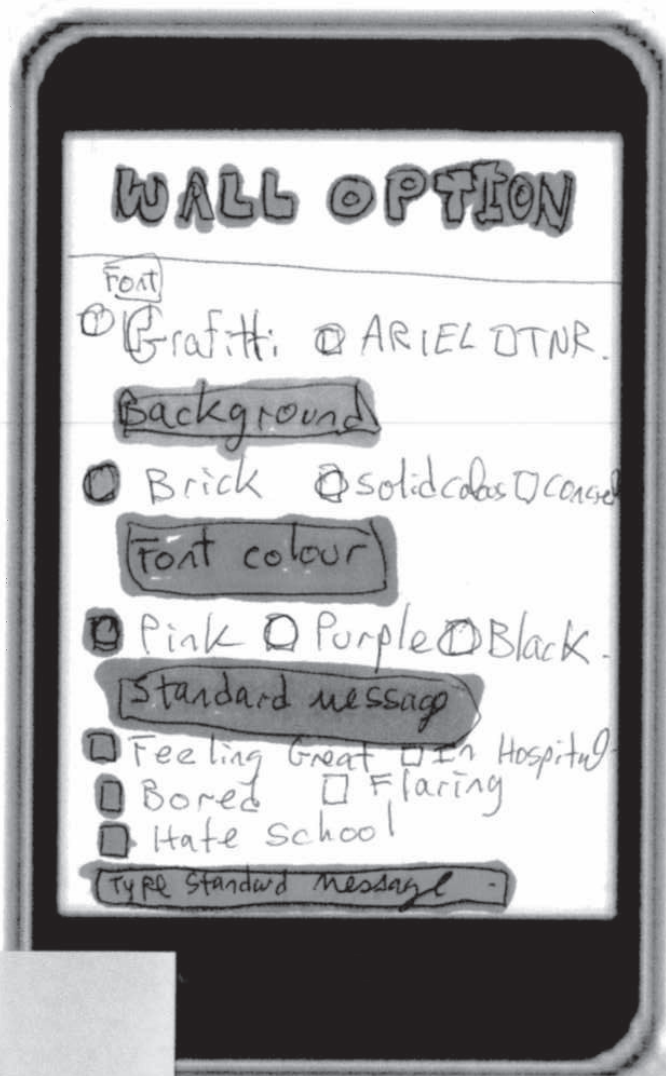 WALL OPTION
Font
Grafitti ARIEL TNR.
Background
Brick Solid colors Concret
Font colour
Pink Purple Black.
Standard message
Feeling Great In Hospital
Bored Flaring
Hate School
Type Standard Message